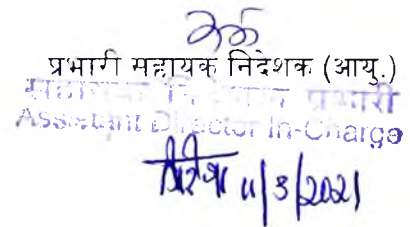 प्रभारी सहायक निदेशक (आयु.)
सहायक निदेशक प्रभारी
Assistant Director In-Charge
11/3/2021